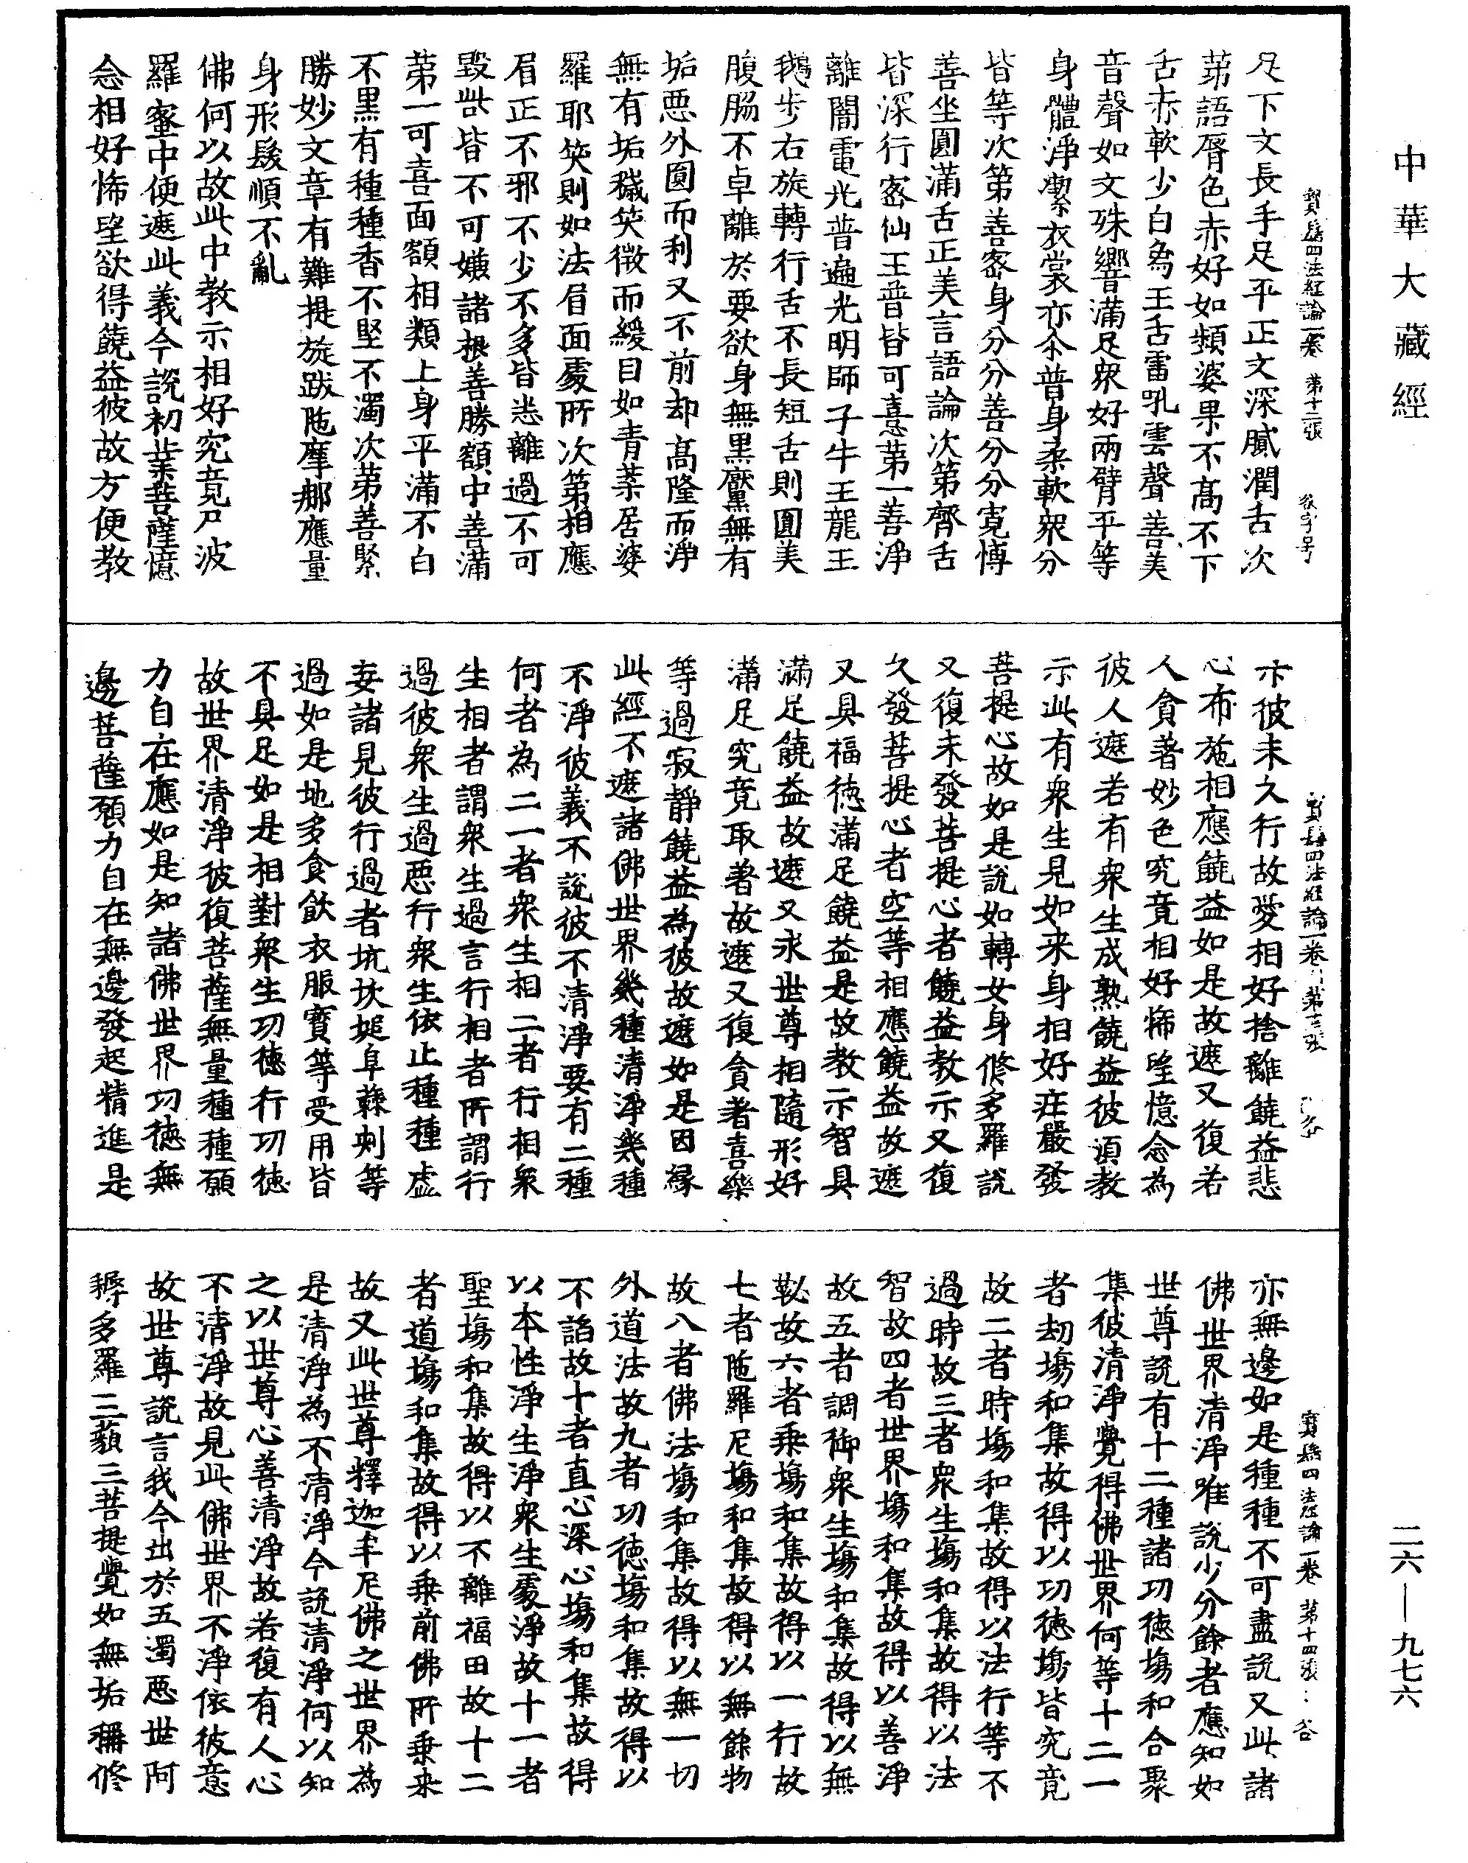 中華大藏經
二六—九七六
寶髻四法經論一卷 第十二張
足下文長手足平正文深膩潤舌次
第語脣色赤好如頻婆果不高不下
舌赤軟少白為王舌雷吼雲聲善美
音聲如文殊響滿足眾好兩臂平等
身體淨潔衣裳亦尒普身柔軟眾分
皆等次第善密身分分善分分寬愽
善坐圓滿舌正美言語論次第齊舌
皆深行密仙王普皆可憙第一善淨
離闇電光普遍光明師子牛王龍王
鵝步右旋轉行舌不長短舌則圓美
腹腸不卓離於要欲身無黑黶無有
垢惡外圓而利又不前却高隆而淨
無有垢穢笑微而緩目如青葉居婆
羅耶笑則如法眉面處所次第相應
眉正不邪不少不多皆悉離過不可
毀呰皆不可嫌諸根善勝額中善滿
第一可喜面額相類上身平滿不白
不黑有種種香不堅不濁次第善緊
勝妙文章有難提旋跋陁摩那應量
身形髮順不亂
佛何以故此中教示相好究竟尸波
羅蜜中便遮此義今說初業菩薩憶
念相好悕望欲得饒益彼故方便教
寶髻四法經論一卷 第十三張
示彼未久行故愛相好捨離饒益悲
心布施相應饒益如是故遮又復若
人貪著妙色究竟相好悕望憶念為
彼人遮若有眾生成熟饒益彼須教
示此有眾生見如来身相好莊嚴發
菩提心故如是說如轉女身修多羅說
又復未發菩提心者饒益教示又復
久發菩提心者空等相應饒益故遮
又具福德滿足饒益是故教示智具
滿足饒益故遮又求世尊相隨形好
滿足究竟取著故遮又復貪著喜樂
等過寂靜饒益為彼故遮如是因緣
此經不遮諸佛世界幾種清淨幾種
不淨彼義不說彼不清淨要有二種
何者為二一者眾生相二者行相眾
生相者謂眾生過言行相者所謂行
過彼眾生過惡行眾生依止種種虛
妄諸見彼行過者坑坎塠阜蕀刺等
過如是地多食飲衣服寶等受用皆
不具足如是相對眾生功德行功德
故世界清淨彼復菩薩無量種種願
力自在應如是知諸佛世界功德無
邊菩薩願力自在無邊發起精進是
寶髻四法經論一卷 第十四張 谷
亦無邊如是種種不可盡說又此諸
佛世界清淨唯說少分餘者應知如
世尊說有十二種諸功德塲和合聚
集彼清淨覺得佛世界何等十二一
者劫塲和集故得以功德塲皆究竟
故二者時塲和集故得以法行等不
過時故三者眾生塲和集故得以法
智故四者世界塲和集故得以善淨
故五者調御眾生塲和集故得以無
毄故六者乘塲和集故得以一行故
七者陁羅尼塲和集故得以無餘物
故八者佛法塲和集故得以無一切
外道法故九者功德塲和集故得以
不諂故十者直心深心塲和集故得
以本性淨生淨眾生處淨故十一者
聖塲和集故得以不離福田故十二
者道塲和集故得以乘前佛所乘来
故又此世尊釋迦牟尼佛之世界為
是清淨為不清淨今說清淨何以知
之以世尊心善清淨故若復有人心
不清淨故見此佛世界不淨依彼意
故世尊說言我今出於五濁惡世阿
耨多羅三藐三菩提覺如無垢稱修